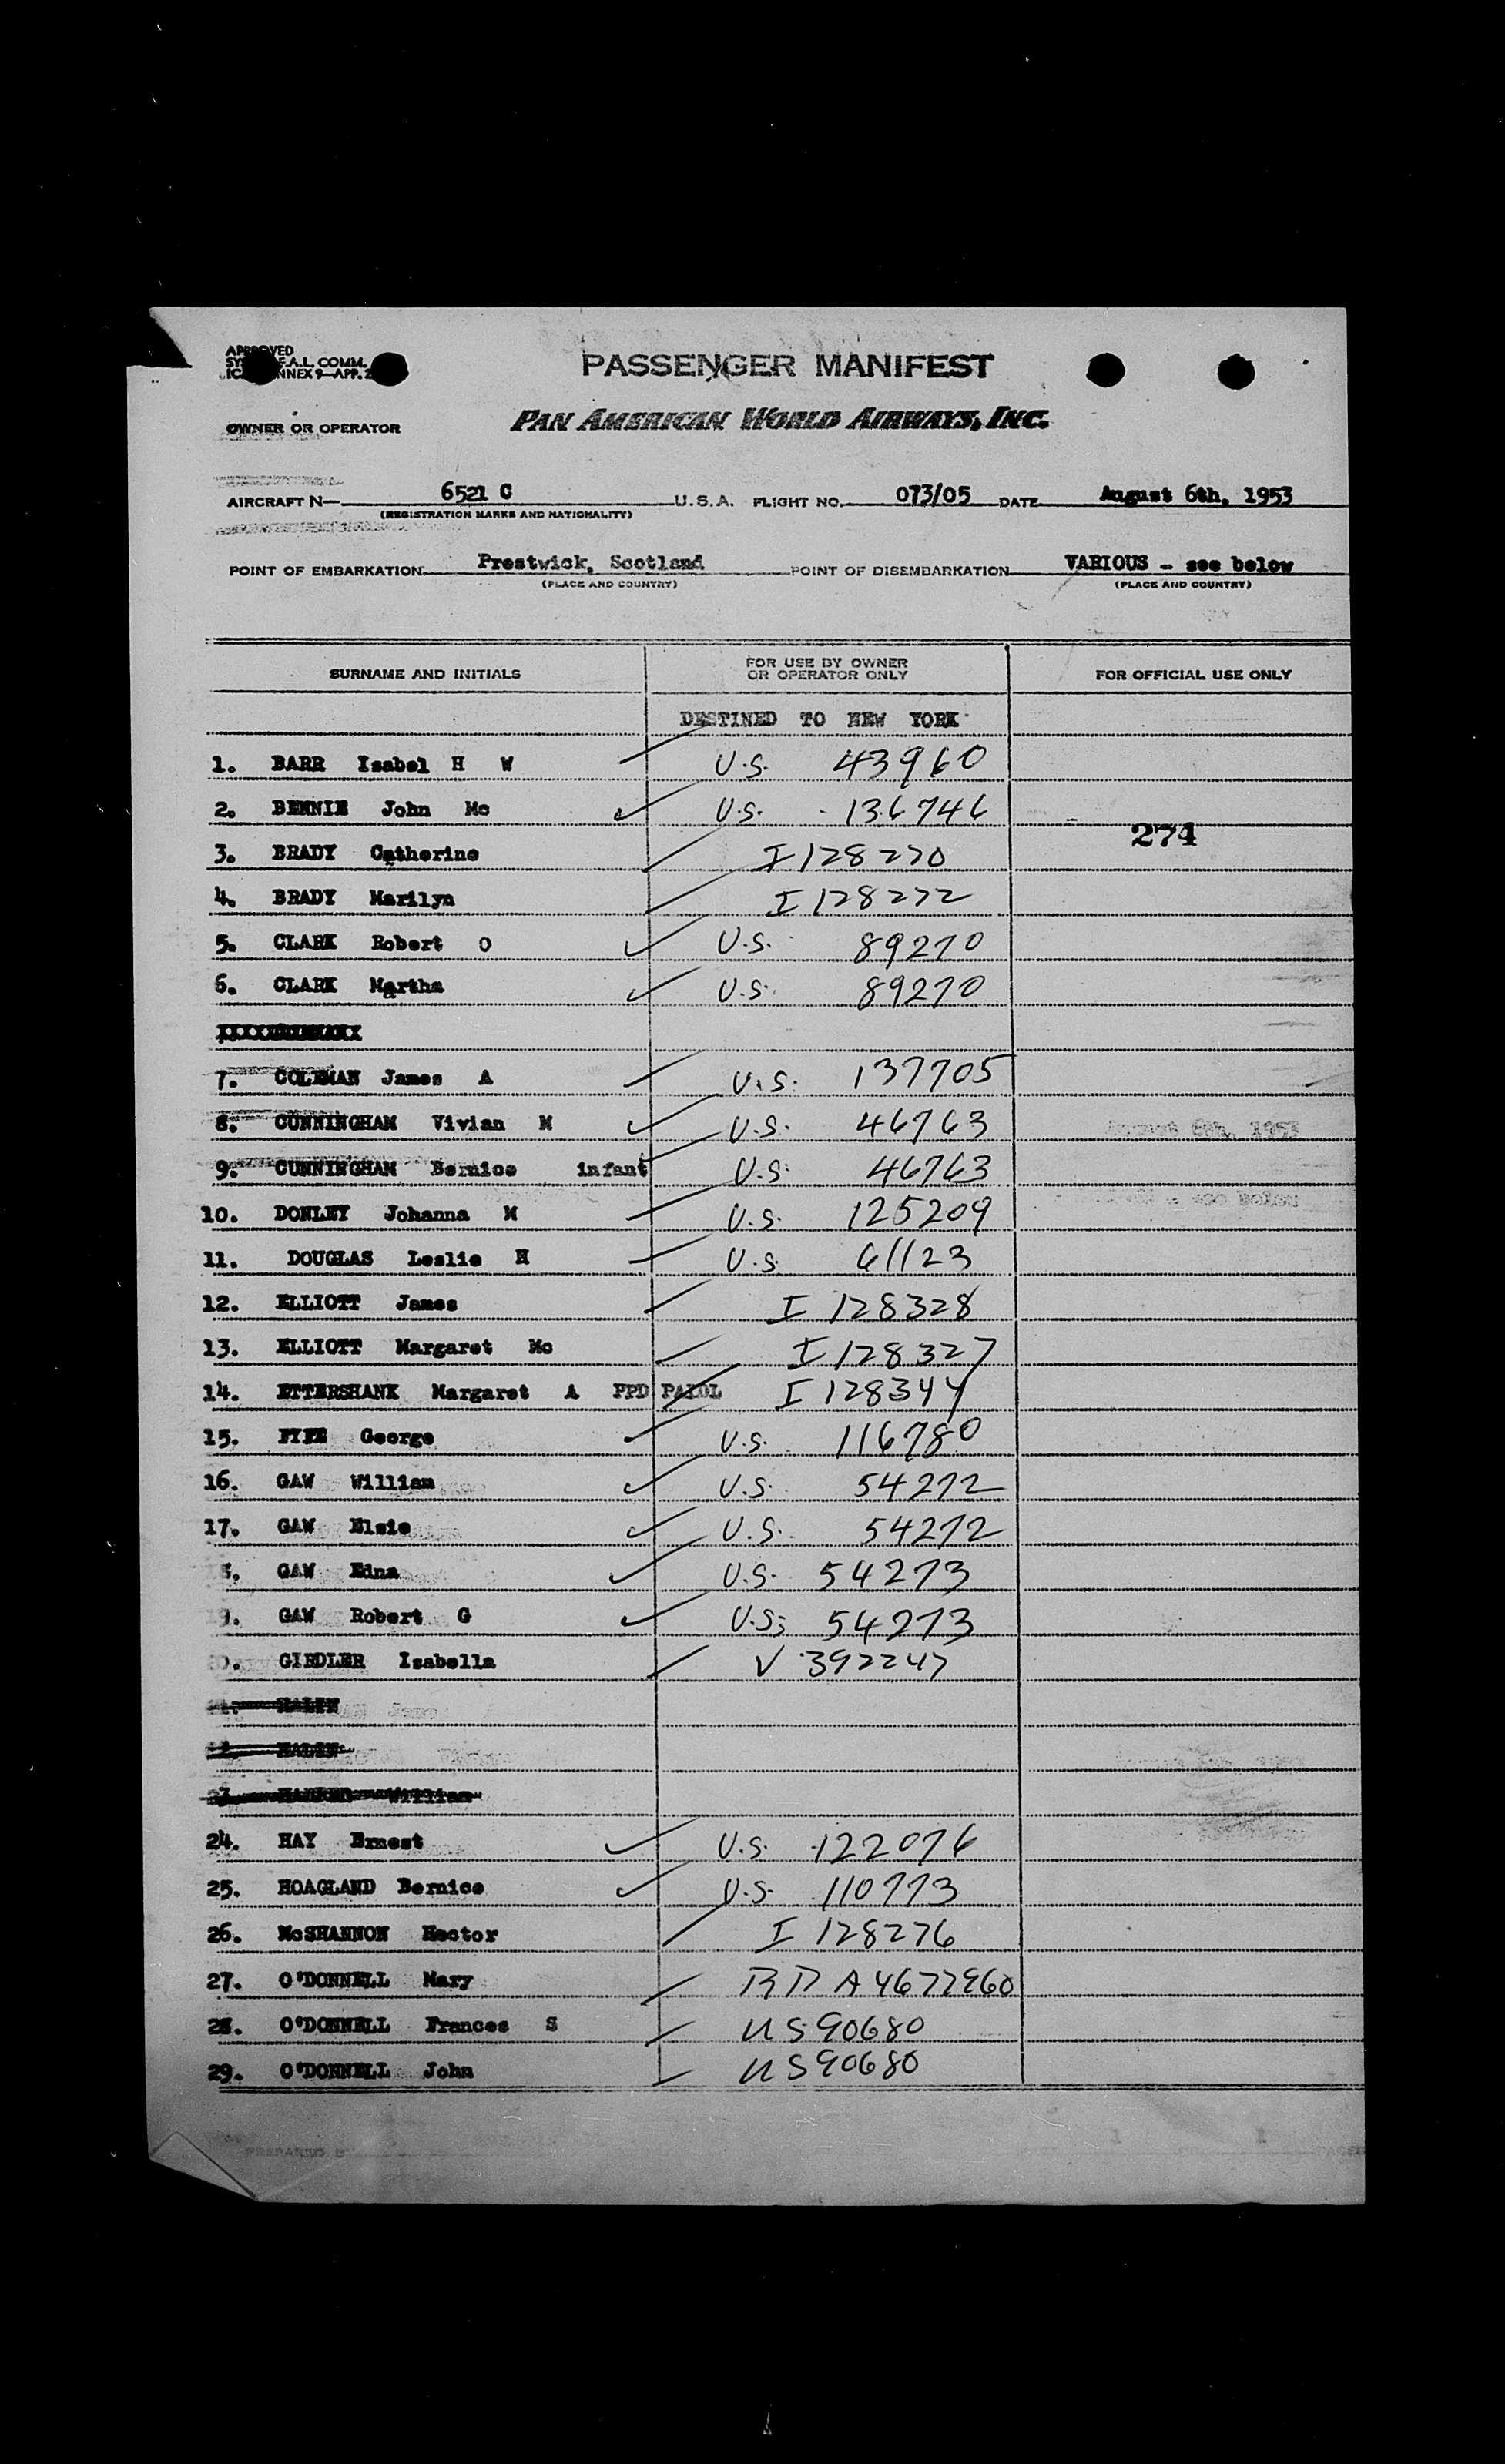 PASSENGER MANIFEST
PAN AMERICAN WORLD AIRWAYS, INC.
OWNER OR OPERATOR
AIRCRAFT N— 6521 C U.S.A. FLIGHT NO. 073/05 DATE August 6th, 1953
(REGISTRATION MARKS AND NATIONALITY)
POINT OF EMBARKATION Prestwick, Scotland POINT OF DISEMBARKATION VARIOUS - see below
(PLACE AND COUNTRY) (PLACE AND COUNTRY)
SURNAME AND INITIALS FOR USE BY OWNER OR OPERATOR ONLY FOR OFFICIAL USE ONLY
DESTINED TO NEW YORK
1. BARR Isabel H W U.S. 43960
2. BENNIE John Mc U.S. 136746
274
3. BRADY Catherine I 128270
4. BRADY Marilyn I 128272
5. CLARK Robert O U.S. 89270
6. CLARK Martha U.S. 89270
7. COLEMAN James A U.S. 137705
8. CUNNINGHAM Vivian M U.S. 46763
9. CUNNINGHAM Bernice infant U.S. 46763
10. DONLEY Johanna M U.S. 125209
11. DOUGLAS Leslie H U.S. 61123
12. ELLIOTT James I 128328
13. ELLIOTT Margaret Mc I 128327
14. ETTERSHANK Margaret A PPD I 128344
15. FYFE George U.S. 116780
16. GAW William U.S. 54272
17. GAW Elsie U.S. 54272
8. GAW Edna U.S. 54273
9. GAW Robert G U.S. 54273
0. GIRDLER Isabella V 392247
24. HAY Ernest U.S. 122076
25. HOAGLAND Bernice U.S. 110773
26. McSHANNON Hector I 128276
27. O'DONNELL Mary A4672860
28. O'DONNELL Frances S US 90680
29. O'DONNELL John US 90680